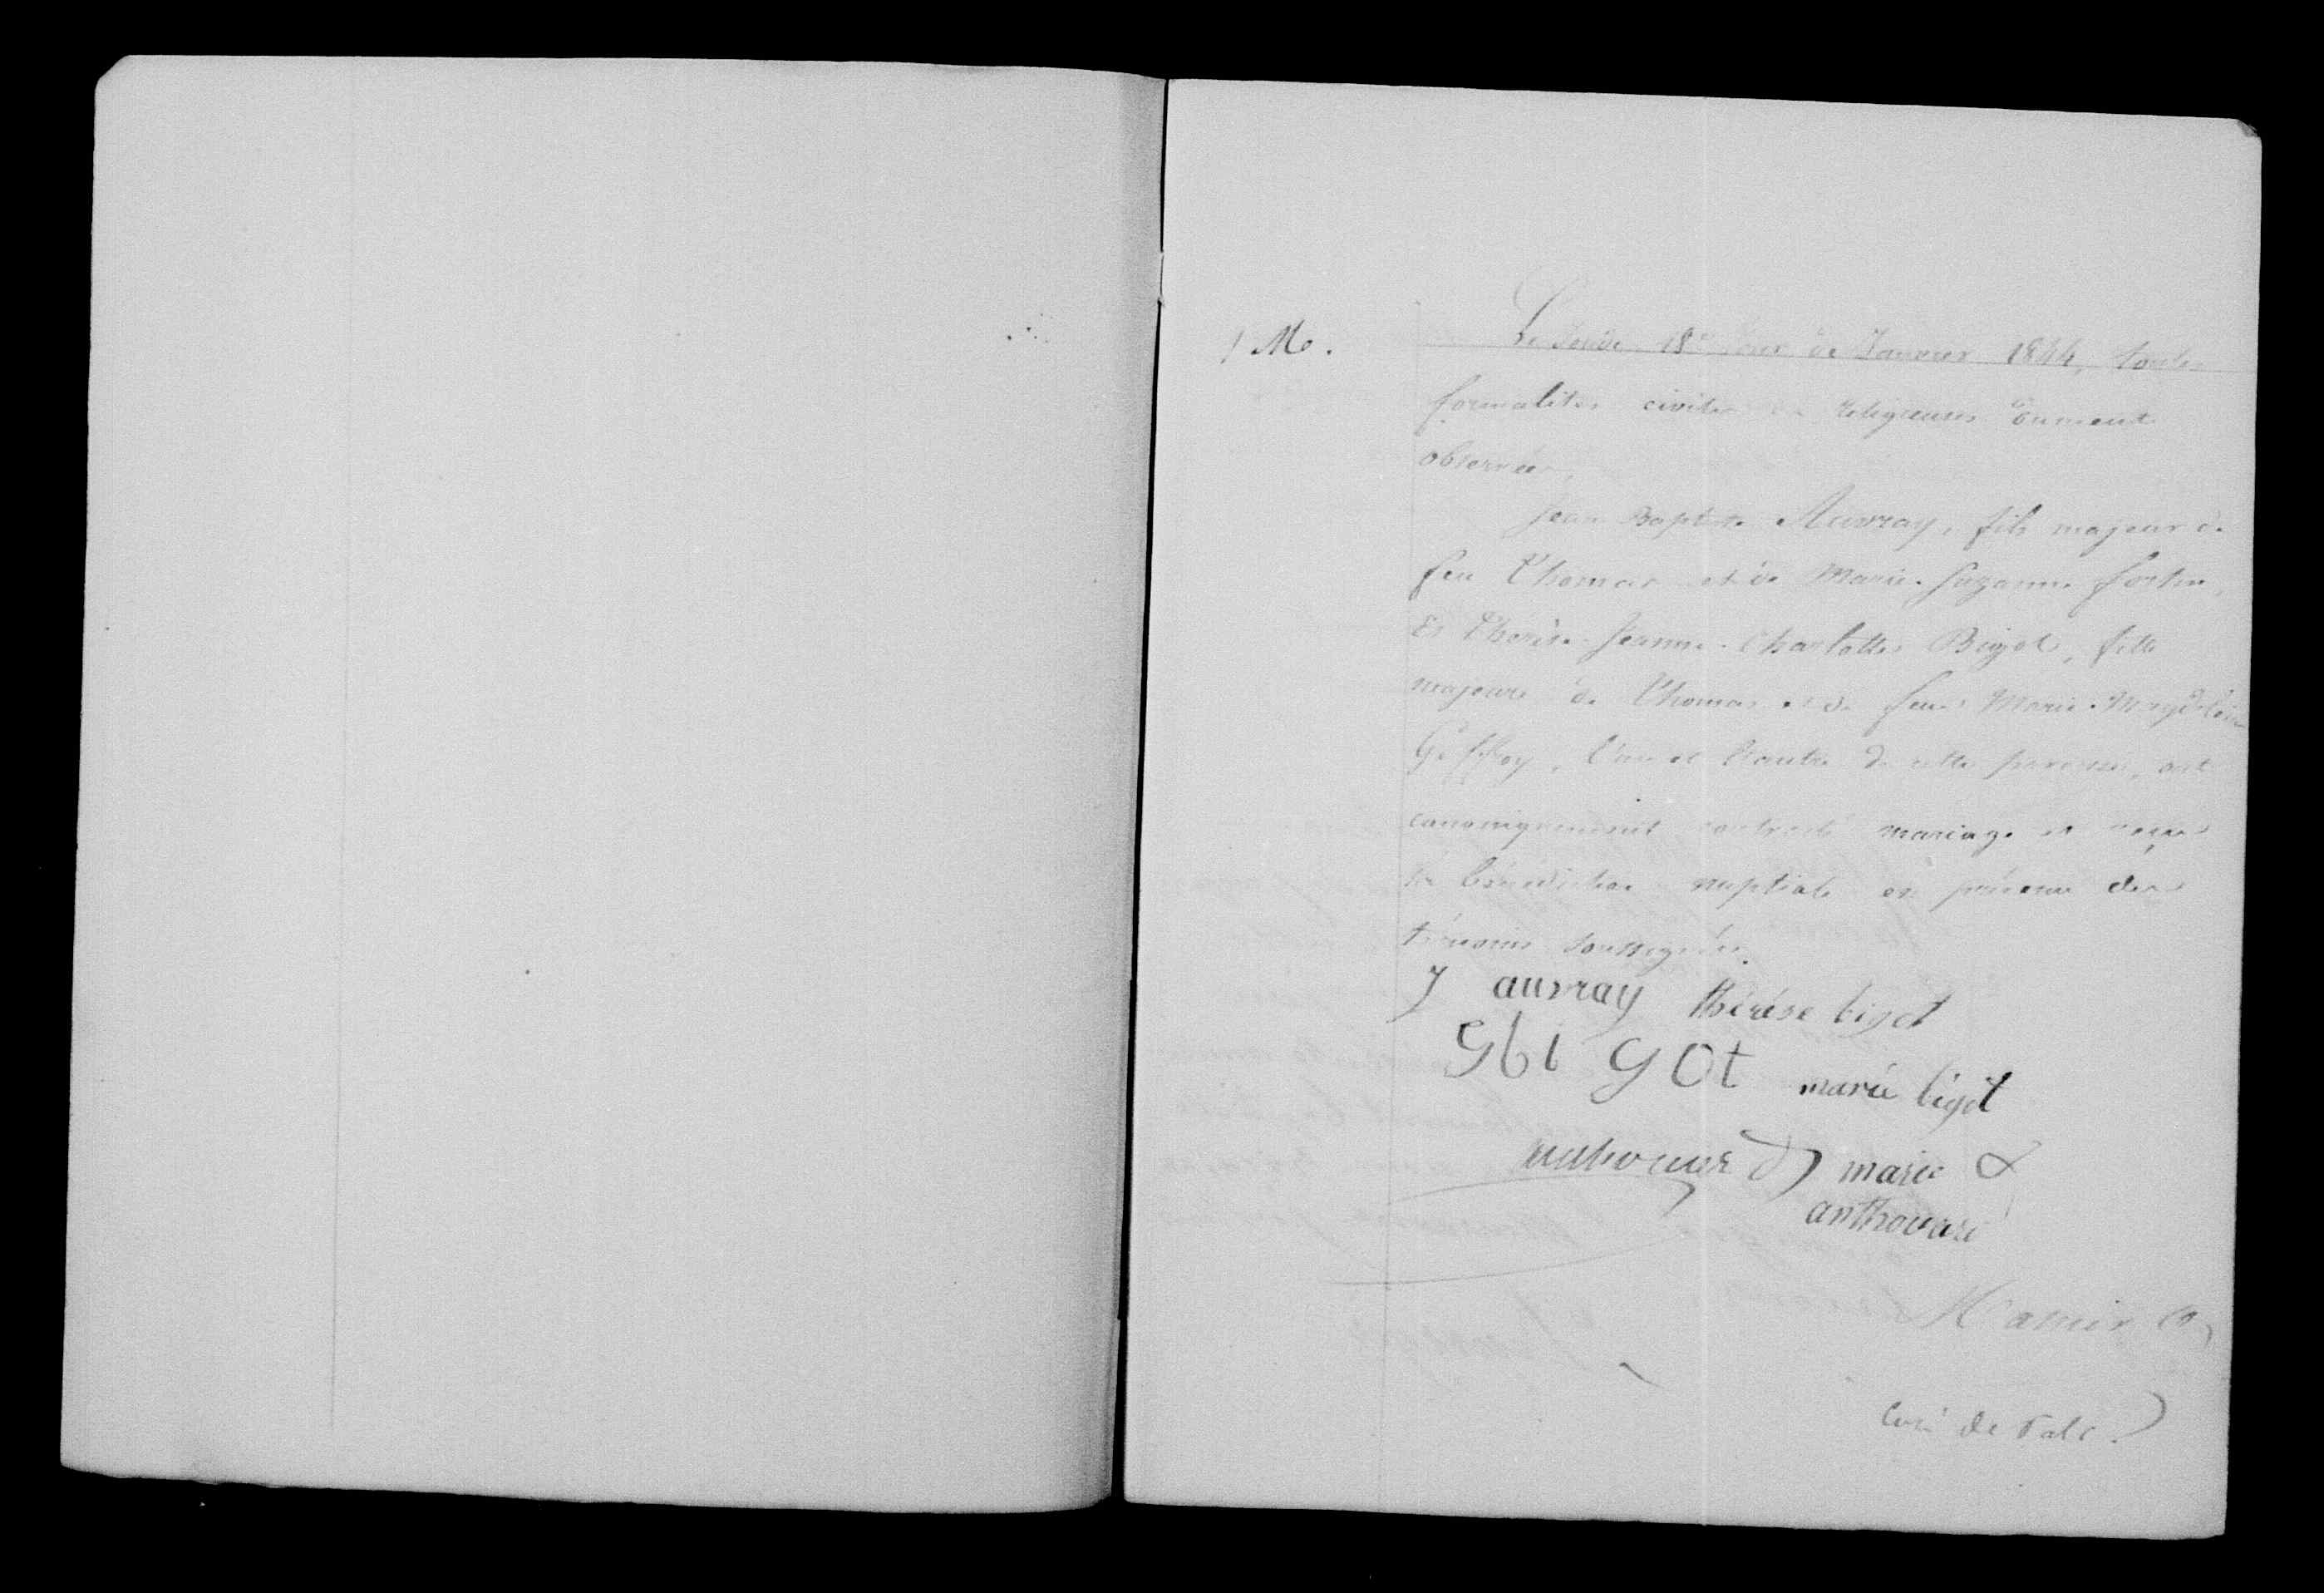 1 M.
Le jeudi 18e jour de Janvier 1844, toutes
formalités civiles et religieuses dument
observées,
Jean Baptiste Auvray, fils majeur de
feu Thomas et de Marie-Suzanne fortin,
Et Thérèse-Jeanne-Charlotte Bigot, fille
majeure de Thomas et de feue Marie-Magdeleine
Geffroy, l'un et l'autre de cette paroisse, ont
canoniquement contracté mariage et reçu
la bénédiction nuptiale en présence des
témoins soussignés.
J auvray thérèse bigot
bigot marie bigot
marie
anthouard
Curé de